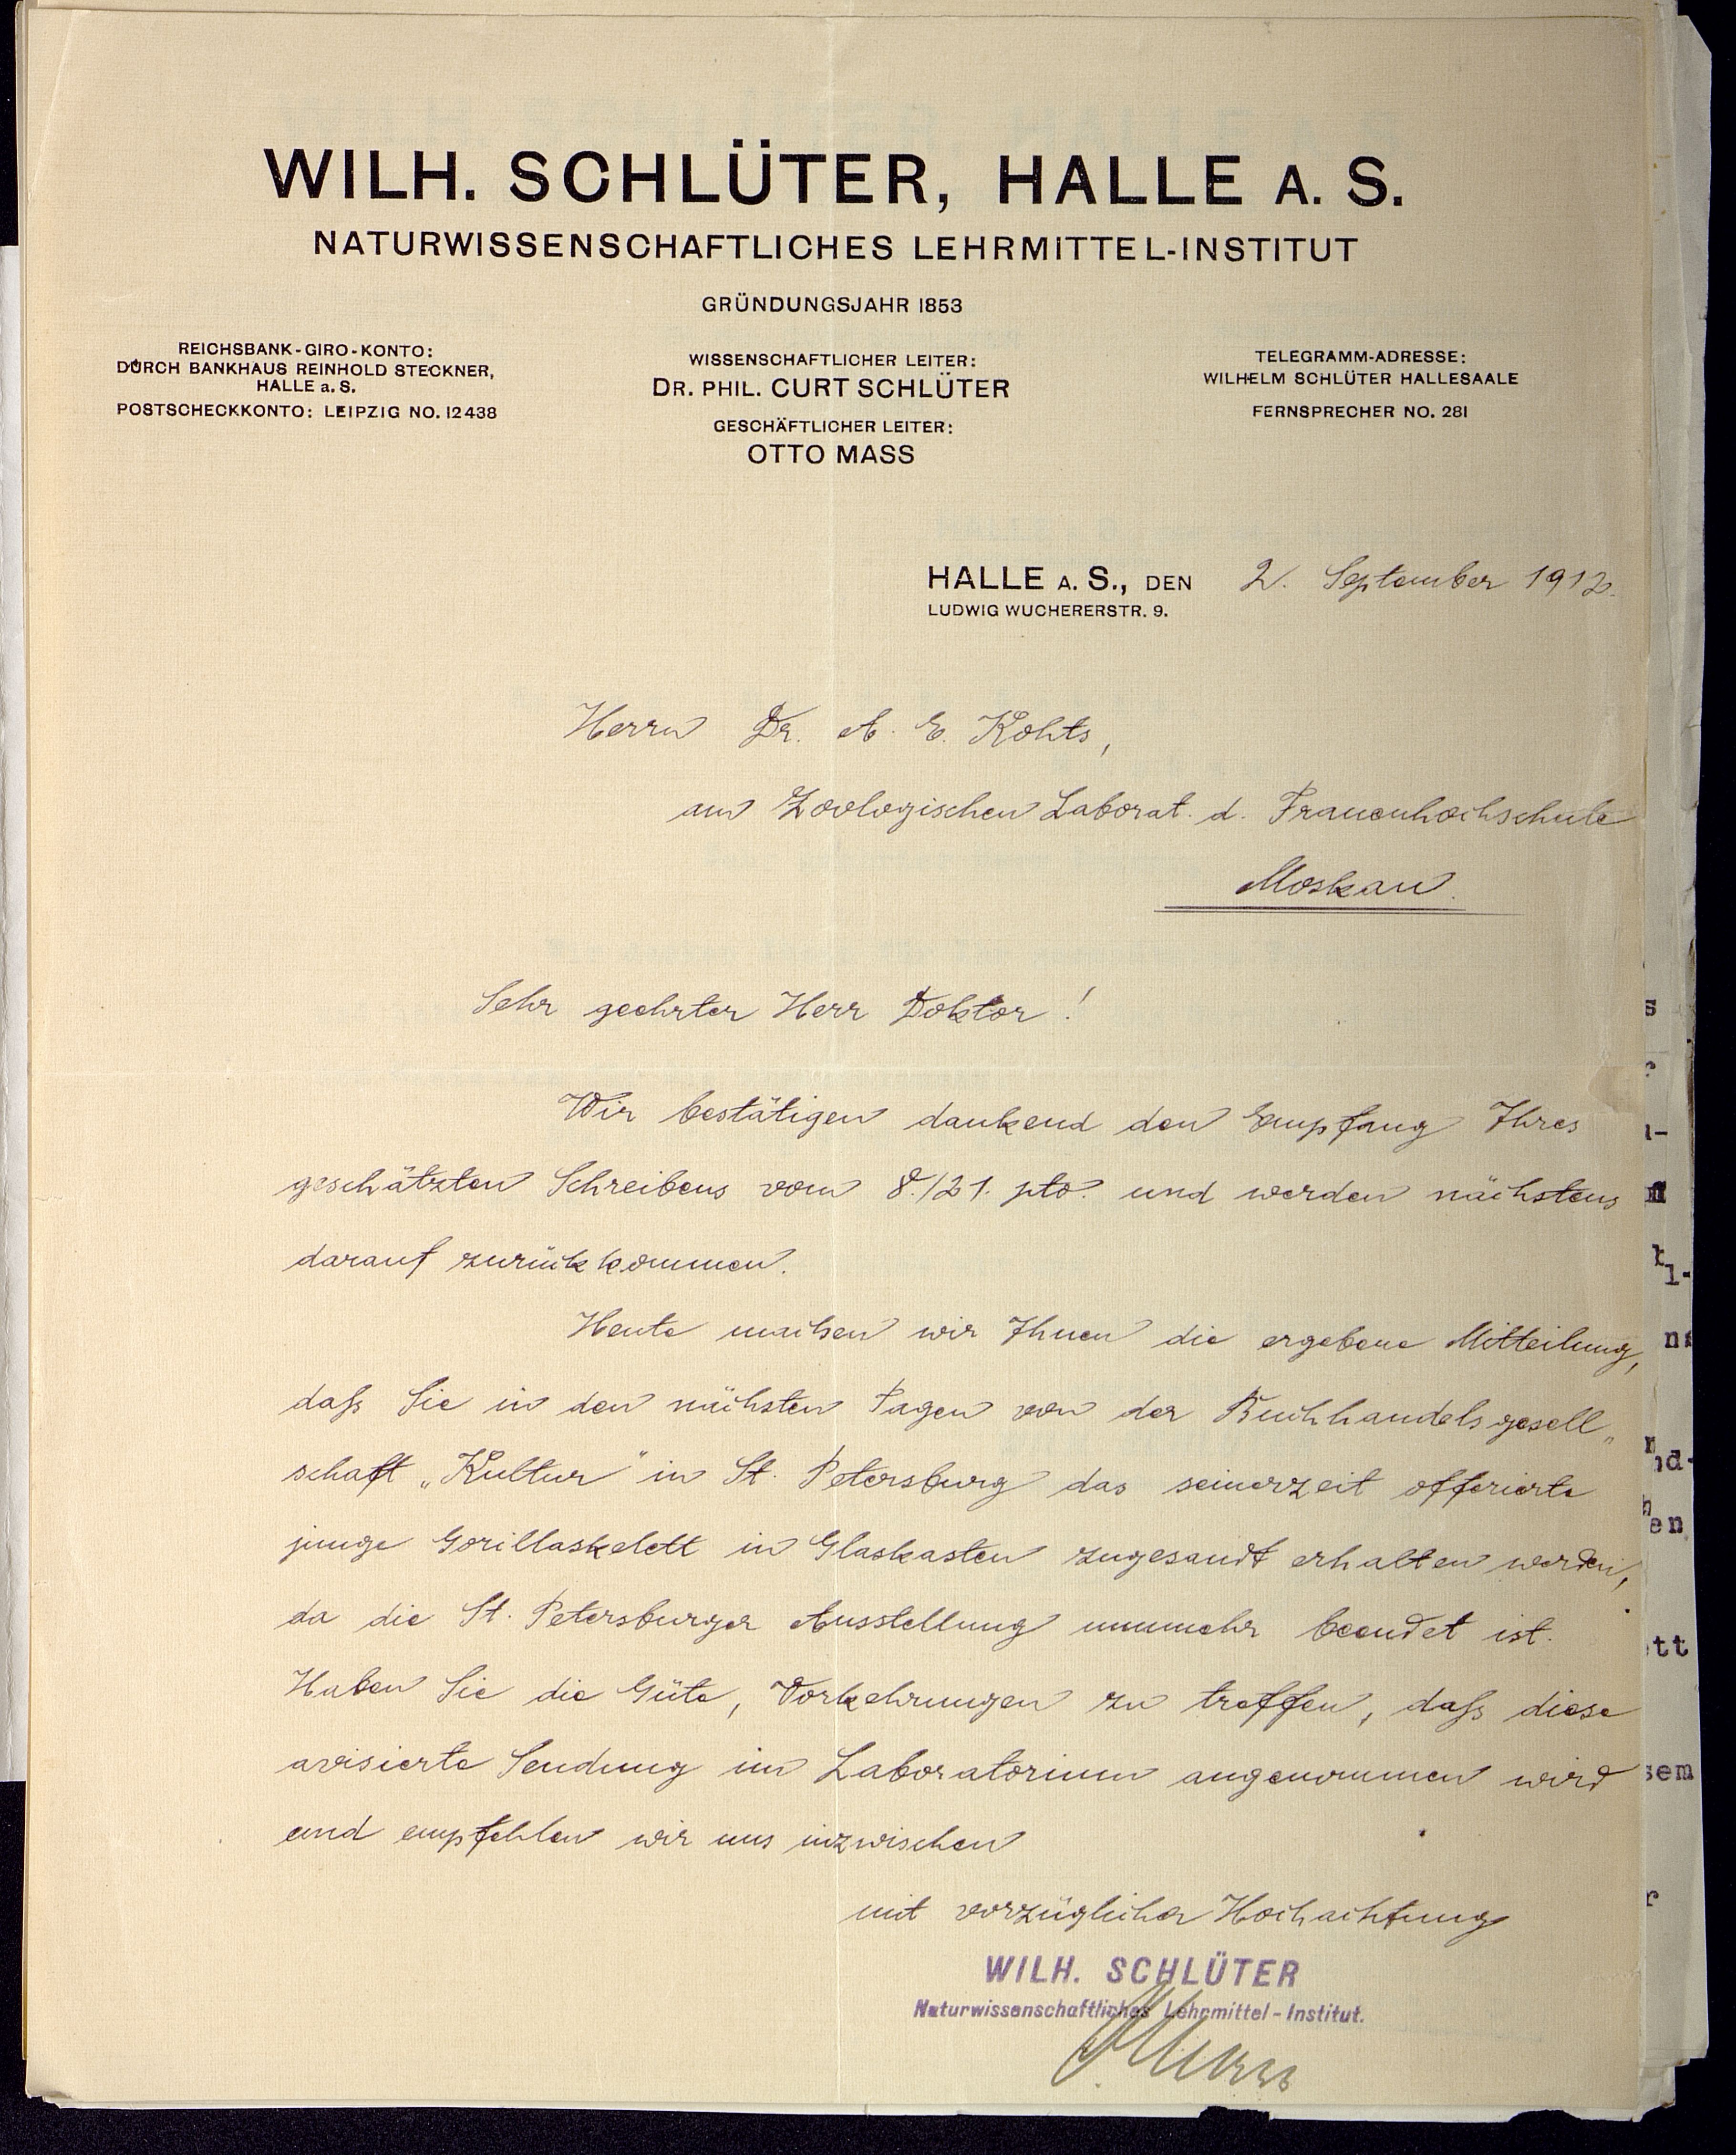 WILH. SCHLÜTER, HALLE A. S.
NATURWISSENSCHAFTLICHES LEHRMITTEL-INSTITUT
GRÜNDUNGSJAHR 1853
REICHSBANK-GIRO-KONTO:
DURCH BANKHAUS REINHOLD STECKNER,
HALLE a. S.
POSTSCHECKKONTO: LEIPZIG NO. 12438
WISSENSCHAFTLICHER LEITER:
DR. PHIL. CURT SCHLÜTER
GESCHÄFTLICHER LEITER:
OTTO MASS
TELEGRAMM-ADRESSE:
WILHELM SCHLÜTER HALLESAALE
FERNSPRECHER NO. 281
HALLE A. S., DEN 2. September 1912.
LUDWIG WUCHERERSTR. 9.
Herrn Dr. A. E. Kohts,
am Zoologischen Laborat. d. Frauenhochschule
Moskau.
Sehr geehrter Herr Doktor!
Wir bestätigen dankend den Empfang Ihres
geschätzten Schreibens vom 8./21. pto. und werden nächstens
darauf zurückkommen.
Heute machen wir Ihnen die ergebene Mitteilung,
daß Sie in den nächsten Tagen von der Buchhandelsgesell„
schaft „Kultur" in St. Petersburg das seinerzeit offerierte
junge Gorillaskelett in Glaskasten zugesandt erhalten werden,
da die St. Petersburger Ausstellung nunmehr beendet ist.
Haben Sie die Güte, Vorkehrungen zu treffen, daß diese
avisierte Sendung im Laboratorium angenommen wird
und empfehlen wir uns inzwischen
mit vorzüglicher Hochachtung
WILH. SCHLÜTER
Naturwissenschaftliches Lehrmittel-Institut.